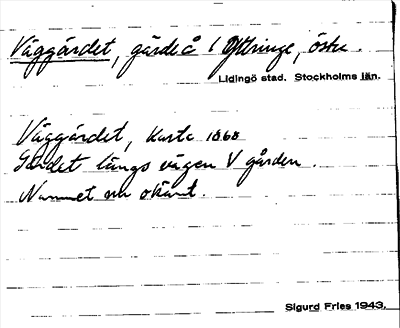 Väggärdet, gärde å Yttringe, östra.
Lidingö stad. Stockholms län.
Väggärdet, karta 1868
Gärdet längs vägen V gården.
Namnet nu okänt.
Sigurd Fries 1943.